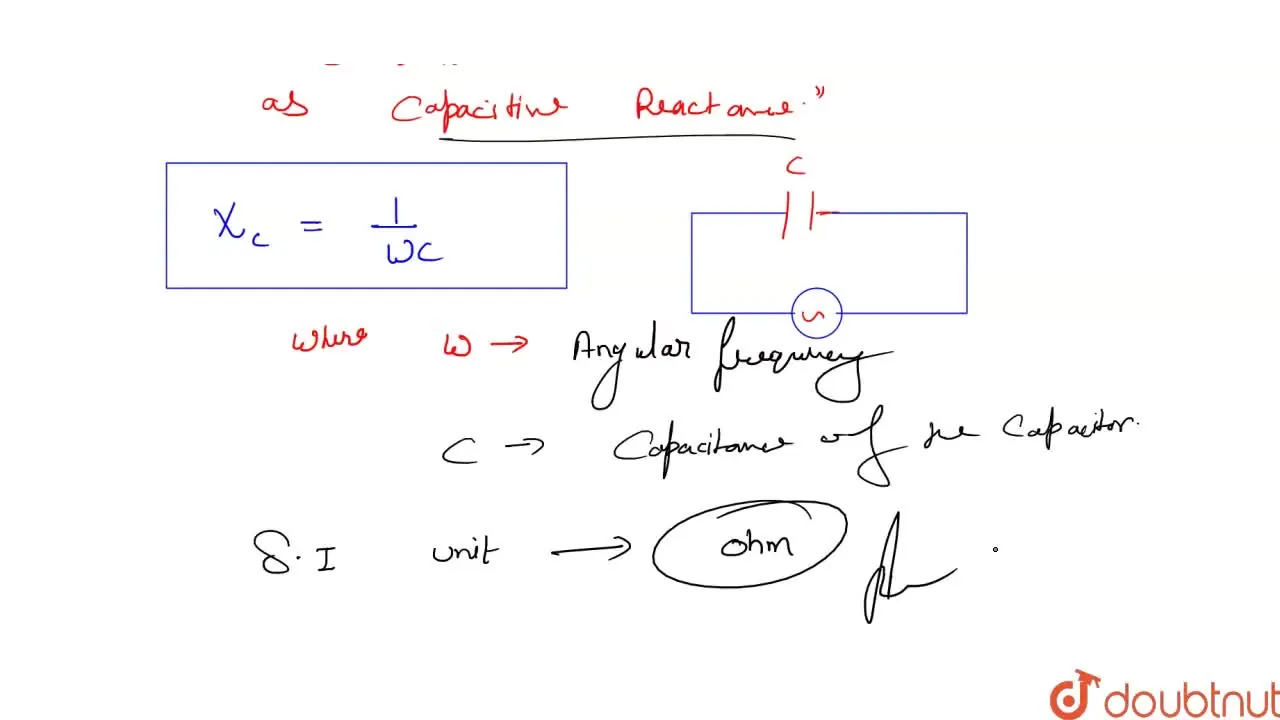 as Capacitive Reactance."
C
X_c = 1/ωC
where ω → Angular frequency
C → Capacitance of the Capacitor.
S.I unit → ohm
doubtnut